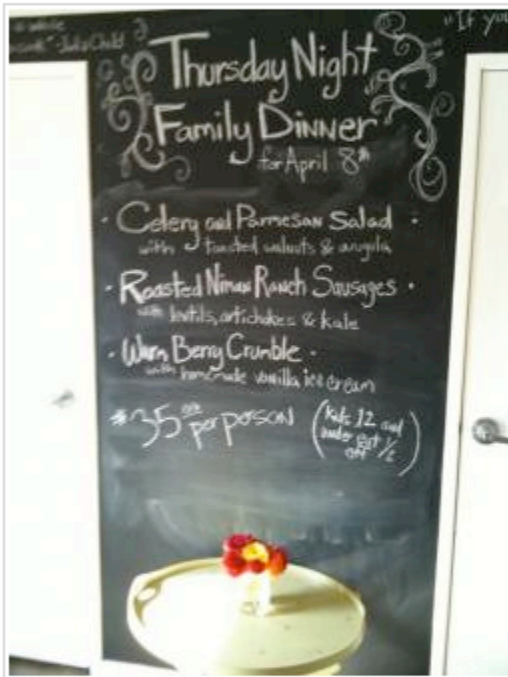 a whole
" - Julia Child
"If you
Thursday Night
Family Dinner
for April 8th
· Celery and Parmesan Salad ·
with toasted walnuts & arugula
· Roasted Niman Ranch Sausages ·
with lentils, artichokes & kale
· Warm Berry Crumble ·
with homemade vanilla ice cream
$35.00 per person
(kids 12 and
under get 1/2
off)